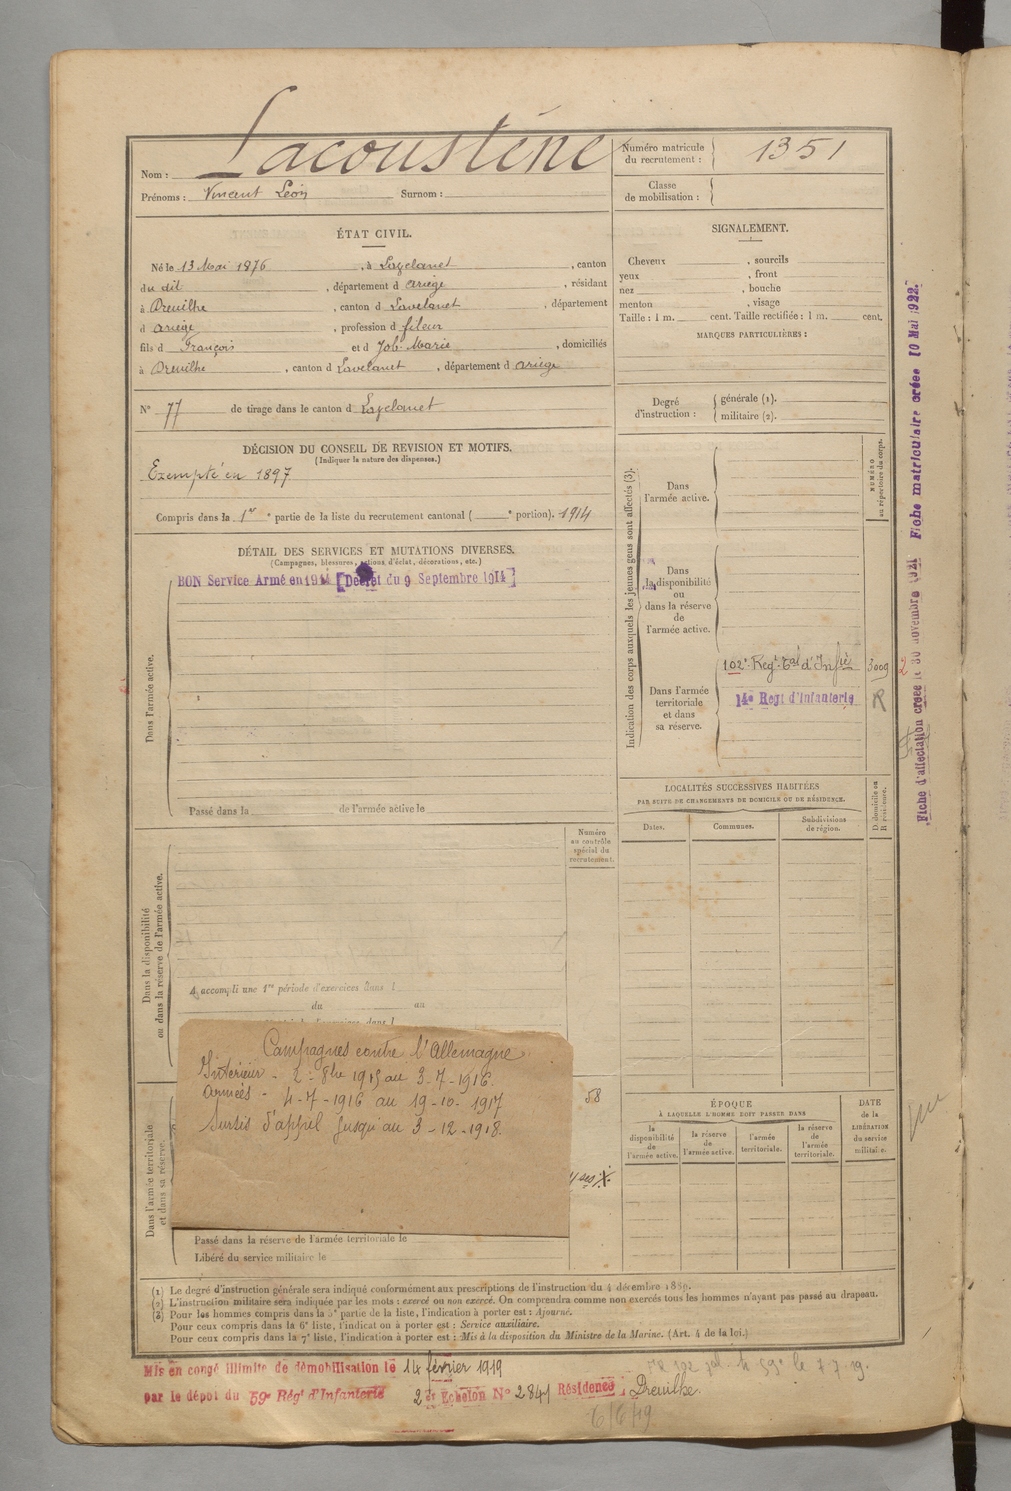 Nom : Lacousténe
Prénoms : Vincent Léon Surnom :
Numéro matricule du recrutement : 1351
Classe de mobilisation :
ÉTAT CIVIL.
Né le 13 Mai 1876, à Lavelanet, canton
du dit, département d ariège, résidant
à Dreuilhe, canton d Lavelanet, département
d ariège, profession d fileur
fils d François et d Job Marie, domiciliés
à Dreuilhe, canton d Lavelanet, département d ariège
N° 77 de tirage dans le canton d Lavelanet
SIGNALEMENT.
Cheveux , sourcils
yeux , front
nez , bouche
menton , visage
Taille : 1 m. cent. Taille rectifiée : 1 m. cent.
MARQUES PARTICULIÈRES :
Degré d'instruction : générale (1).
militaire (2).
DÉCISION DU CONSEIL DE REVISION ET MOTIFS.
(Indiquer la nature des dispenses.)
Exempté en 1897
Compris dans la 1re partie de la liste du recrutement cantonal ( e portion). 1914
DÉTAIL DES SERVICES ET MUTATIONS DIVERSES.
(Campagnes, blessures, actions d'éclat, décorations, etc.)
BON Service Armé en 1914 [Décret du 9 Septembre 1914]
Dans l'armée active.
Passé dans la de l'armée active le
Indication des corps auxquels les jeunes gens sont affectés (3).
NUMÉRO au répertoire du corps.
Dans l'armée active.
Dans la disponibilité ou dans la réserve de l'armée active.
Dans l'armée territoriale et dans sa réserve.
102e Regt Tal d'Infie 3009 2
14e Regt d'Infanterie R
Fiche d'affectation créée le 30 novembre 1921 Fiche matriculaire créée 10 Mai 1922.
LOCALITÉS SUCCESSIVES HABITÉES
PAR SUITE DE CHANGEMENTS DE DOMICILE OU DE RÉSIDENCE.
Dates. Communes. Subdivisions de région.
D. domicile ou R. résidence.
Numéro au contrôle spécial du recrutement.
Dans la disponibilité ou dans la réserve de l'armée active.
A accompli une 1re période d'exercices dans l
du au
Campagnes contre l'Allemagne
Intérieur - 2 - 8bre 1915 au 3-7-1916.
Armées - 4-7-1916 au 19-10-1917
Sursis d'appel jusqu'au 3-12-1918.
58
Dans l'armée territoriale et dans sa réserve.
Passé dans la réserve de l'armée territoriale le
Libéré du service militaire le
ÉPOQUE
À LAQUELLE L'HOMME DOIT PASSER DANS
la disponibilité de l'armée active.
la réserve de l'armée active.
l'armée territoriale.
la réserve de l'armée territoriale.
DATE de la LIBÉRATION du service militaire.
(1) Le degré d'instruction générale sera indiqué conformément aux prescriptions de l'instruction du 4 décembre 1889.
(2) L'instruction militaire sera indiquée par les mots : exercé ou non exercé. On comprendra comme non exercés tous les hommes n'ayant pas passé au drapeau.
(3) Pour les hommes compris dans la 5e partie de la liste, l'indication à porter est : Ajourné.
Pour ceux compris dans la 6e liste, l'indication à porter est : Service auxiliaire.
Pour ceux compris dans la 7e liste, l'indication à porter est : Mis à la disposition du Ministre de la Marine. (Art. 4 de la loi.)
Mis en congé illimité de démobilisation le 14 février 1919
par le dépot du 59e Régt d'Infanterie 2e Echelon N° 2841 Résidence : Dreuilhe.
6/6/19